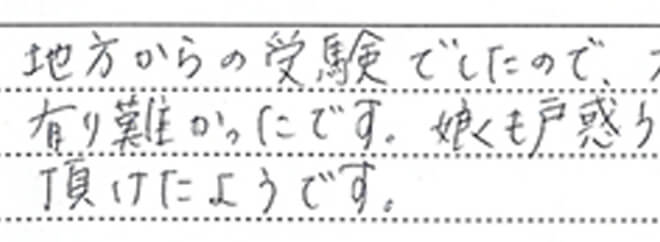 地方からの受験でしたので、
有り難かったです。娘も戸惑う
頂けたようです。